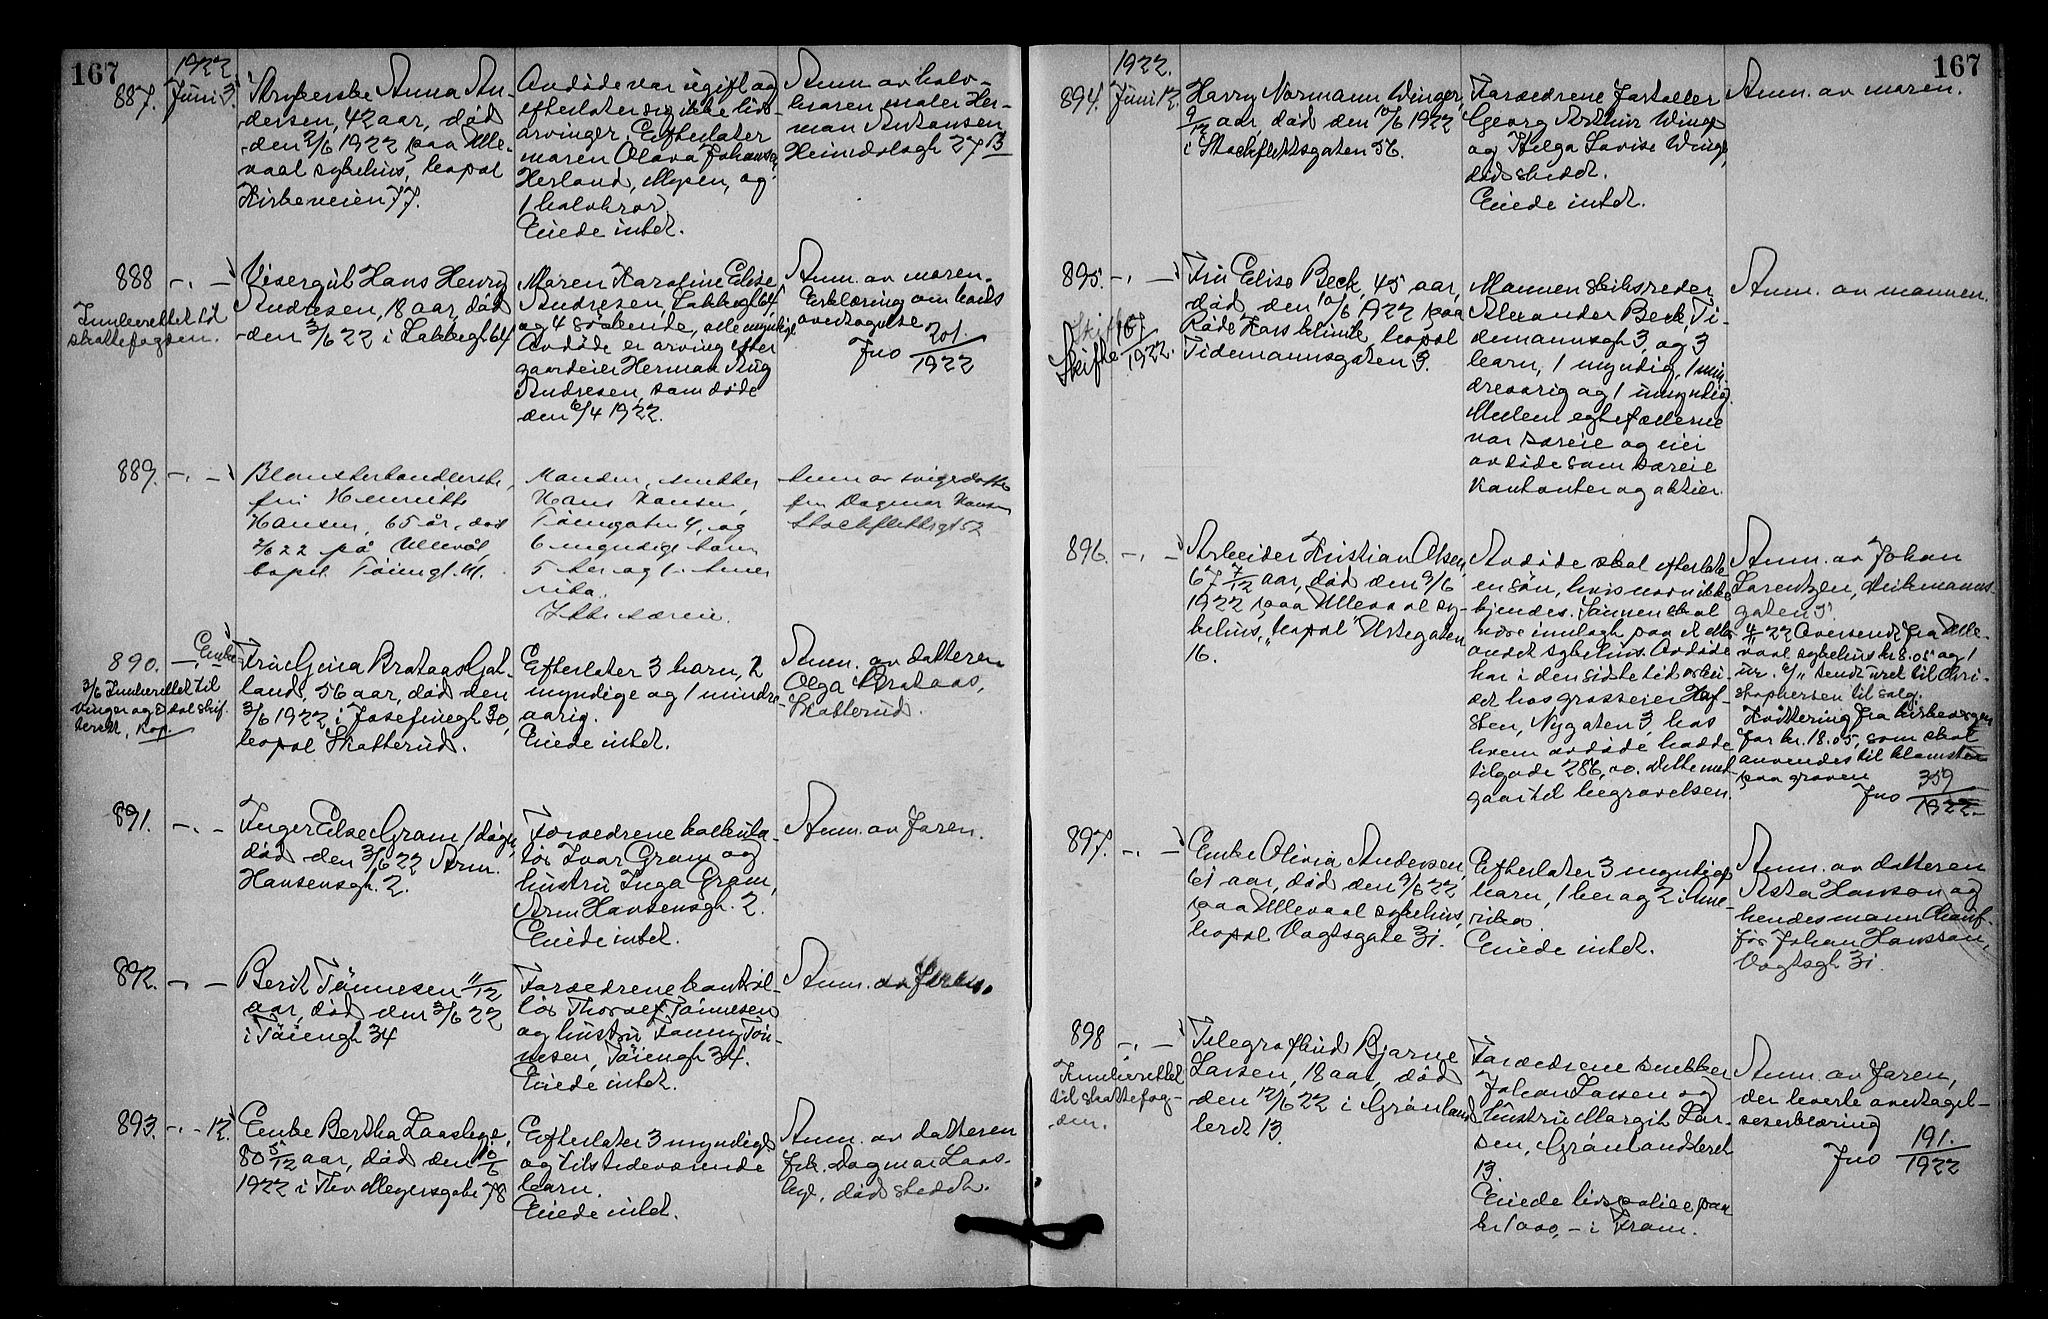 167
1922
887. Juni 3.
Strykerske Anna An-
dersen, 42 aar, död
den 2/6 1922 paa Ulle-
vaal sykehus, bopæl
Kirkeveien 77.
Avdöde var ugift og
efterlater sig ikke livs-
arvinger. Efterlater
moren Olava Johansen
Herland, Mysen, og
1 halvbror.
Eiede intet.
Anm. av halv-
broren maler Her-
man Antonsen
Heimdalsgt 27 B
888 -„- -
Innberettet til
skattefogden.
Visergut Hans Henry
Andresen, 18 aar, död
den 3/6 22 i Lakkegt 64
Moren Karoline Elise
Andresen, Lakkegt 64,
og 4 söskende, alle myndige
Avdöde er arving efter
gaardeier Herman Aug
Andresen, som döde
den 6/4 1922.
Anm. av moren.
Erklæring om boets
overtagelse
Jno 201./1922
889. -„- -
Blomsterhandlerske,
fru Henriette
Hansen, 65 år, död
2/6 22 på Ullevål,
bopæl Töiengt. 4.
Manden, snekker
Hans Hansen,
Töiengaten 4, og
6 myndige barn
5 her og 1 i Amer
rika.
Ikke særeie.
Anm av svigerdatter
fru Dagmar Hansen
Stockflethsgt 52
890. -„- -
3/6 Innberettet til
Vinger og Odal skif-
terett, Kop.
Enke
Fru Gina Brataas Gat-
land, 56 aar, död den
3/6 1922 i Josefinegt 30,
bopæl Skotterud.
Efterlater 3 barn, 2
myndige og 1 mindre-
aarig.
Eiede intet.
Anm. av datteren
Olga Brataas,
Skotterud.
891. -„- -
Inger Else Gram, 1 dag,
död den 3/6 22 Arm.
Hansensgt. 2.
Forældrene kalkula-
tör Ivar Gram og
hustru Inga Gram,
Arm Hansensgt. 2.
Eiede intet.
Anm. av faren.
892. -„- -
Berit Tönnesen 11/12
aar, död den 3/6 22
i Töiengt 34
Forældrene kontrol-
lör Thorolf Tönnesen
og hustru Fanny Tön-
nesen, Töiengt 34.
Eiede intet.
Anm. av faren.
893. -„- 12.
Enke Bertha Laaslege,
80 5/12 aar, död den 10/6
1922 i Thv Meyersgate 78
Efterlater 3 myndige
og tilstedeværende
barn.
Eiede intet.
Anm. av datteren
frk. Dagmar Laas-
lege, dödsstedet.
167
1922.
894. Juni 12.
Harry Normann Winger,
9/12 aar, död den 10/6 1922
i Stockflettsgaten 56.
Forældrene fortæller
Georg Arthur Winger
og Helga Lovise Winger,
dödsstedet.
Eiede intet.
Anm. av moren.
895. -„- -
Skifte 167/1922.
Fru Elise Beck, 45 aar,
död den 10/6 1922 paa
Röde Kors klinik, bopæl
Tidemannsgaten 3.
Mannen skibsreder
Alexander Beck, Ti-
demannsgt 3, og 3
barn, 1 myndig, 1 min-
dreaarig og 1 umyndig.
Mellem egtefællerne
var særeie og eier
avdöde som særeie
kontanter og aktier.
Anm. av mannen.
896. -„- -
Arbeider Kristian Olsen,
67 7/12 aar, död den 9/6
1922 paa Ullevaal sy-
kehus, bopæl Urtegaten
16.
Avdöde skal efterlate
en sön, hvis navn ikke
kjendes. Sönnen skal
være innlagt paa et eller
andet sykehus. Avdöde
har i den sidste tid arbei-
det hos grosserer Haf-
sten, Nygaten 3, hos
hvem avdöde hadde
tilgode 286,00. Dette med-
gaar til begravelsen.
Anm. av Johan
Lorentzen,
gaten 9.
4/11 22 Oversendt fra Ulle-
vaal sykehus kr 8.05 og 1
ur. 6/11 sendt uret til Chri-
stophersen til salg.
Kvittering fra kirkevergen
for kr. 18.05, som skal
anvendes til blomster
paa graven
Jno 359/1922
897. -„- -
Enke Olivia Andersen,
61 aar, död den 9/6 22
paa Ullevaal sykehus,
bopæl Vogtsgate 31.
Efterlater 3 myndige
barn, 1 her og 2 i Ame-
rika.
Eiede intet.
Anm. av datteren
Asta Hansson og
hendes mann Chauf-
för Johan Hansson,
Vogtsgt 31.
898 -„- -
Innberettet
til skattefog-
den.
Telegrafbud Bjarne
Larsen, 18 aar, död
den 12/6 22 i Grönland
leret 13.
Forældrene snekker
Johan Larsen og
hustru Margit Lar-
sen, Grönlandsleret
13.
Eiede livspolice paa
kr 1000,- i Fram.
Anm. av faren,
der leverte overtagel-
seserklæring
Jno 191./1922